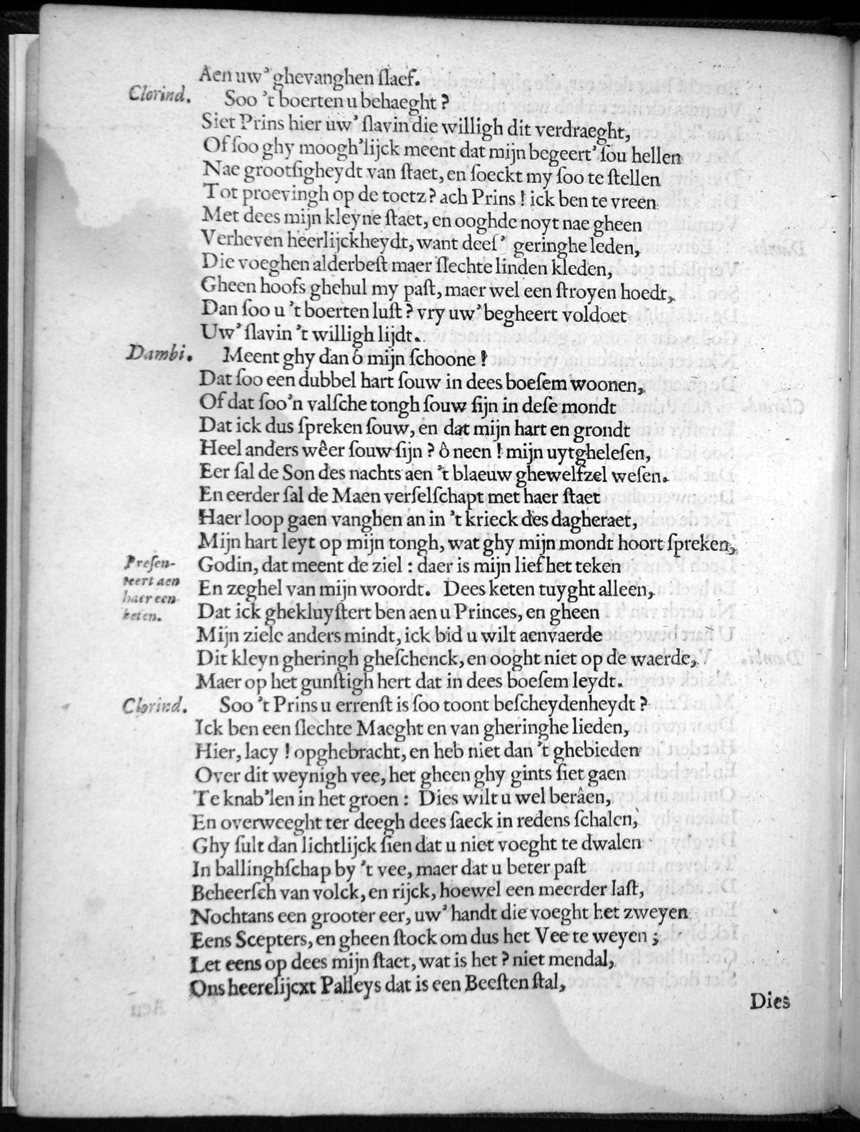 Aen uw’ ghevanghen ſlaef.
Clorind. Soo ’t boerten u behaeght ?
Siet Prins hier uw’ ſlavin die willigh dit verdraeght,
Of ſoo ghy moogh’lijck meent dat mijn begeert’ ſou hellen
Nae grootſigheydt van ſtaet, en ſoeckt my ſoo te ſtellen
Tot proevingh op de toetz? ach Prins ! ick ben te vreen
Met dees mijn kleyne ſtaet, en ooghde noyt nae gheen
Verheven heerlijckheydt, want deeſ’ geringhe leden,
Die voeghen alderbeſt maer ſlechte linden kleden,
Gheen hoofs ghehul my paſt, maer wel een ſtroyen hoedt,
Dan ſoo u ’t boerten luſt ? vry uw’ begheert voldoet
Uw’ ſlavin ’t willigh lijdt.
Dambi. Meent ghy dan ô mijn ſchoone !
Dat ſoo een dubbel hart ſouw in dees boeſem woonen,
Of dat ſoo’n valſche tongh ſouw ſijn in deſe mondt
Dat ick dus ſpreken ſouw, en dat mijn hart en grondt
Heel anders wêer ſouw ſijn ? ô neen ! mijn uytgheleſen,
Eer ſal de Son des nachts aen ’t blaeuw ghewelfzel weſen.
En eerder ſal de Maen verſelſchapt met haer ſtaet
Haer loop gaen vanghen an in ’t krieck des dagheraet,
Mijn hart leyt op mijn tongh, wat ghy mijn mondt hoort ſpreken,
Preſen-
teert aen
haer een
keten.
Godin, dat meent de ziel : daer is mijn lief het teken
En zeghel van mijn woordt. Dees keten tuyght alleen,
Dat ick ghekluyſtert ben aen u Princes, en gheen
Mijn ziele anders mindt, ick bid u wilt aenvaerde
Dit kleyn gheringh gheſchenck, en ooght niet op de waerde,
Maer op het gunſtigh hert dat in dees boeſem leydt.
Clorind. Soo ’t Prins u errenſt is ſoo toont beſcheydenheydt ?
Ick ben een ſlechte Maeght en van gheringhe lieden,
Hier, lacy ! opghebracht, en heb niet dan ’t ghebieden
Over dit weynigh vee, het gheen ghy gints ſiet gaen
Te knab’len in het groen : Dies wilt u wel berâen,
En overweeght ter deegh dees ſaeck in redens ſchalen,
Ghy ſult dan lichtlijck ſien dat u niet voeght te dwalen
In ballinghſchap by ’t vee, maer dat u beter paſt
Beheerſch van volck, en rijck, hoewel een meerder laſt,
Nochtans een grooter eer, uw’ handt die voeght het zweyen
Eens Scepters, en gheen ſtock om dus het Vee te weyen ;
Let eens op dees mijn ſtaet, wat is het ? niet mendal,
Ons heerelijcxt Palleys dat is een Beeſten ſtal,
Dies